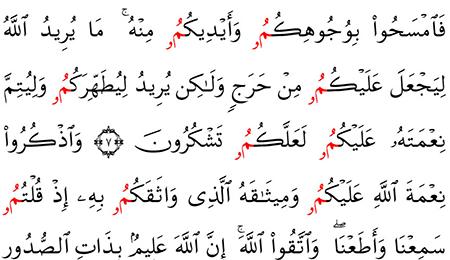 فَٱمۡسَحُواْ بِوُجُوهِكُمُۥ وَأَيۡدِيكُمُۥ مِنۡهُۚ مَا يُرِيدُ ٱللَّهُ
لِيَجۡعَلَ عَلَيۡكُمُۥ مِنۡ حَرَجٖ وَلَٰكِن يُرِيدُ لِيُطَهِّرَكُمُۥ وَلِيُتِمَّ
نِعۡمَتَهُۥ عَلَيۡكُمُۥ لَعَلَّكُمُۥ تَشۡكُرُونَ ۝٧ وَٱذۡكُرُواْ
نِعۡمَةَ ٱللَّهِ عَلَيۡكُمُۥ وَمِيثَٰقَهُ ٱلَّذِي وَاثَقَكُمُۥ بِهِۦ إِذۡ قُلۡتُمُۥ
سَمِعۡنَا وَأَطَعۡنَاۖ وَٱتَّقُواْ ٱللَّهَۚ إِنَّ ٱللَّهَ عَلِيمُۢ بِذَاتِ ٱلصُّدُورِ